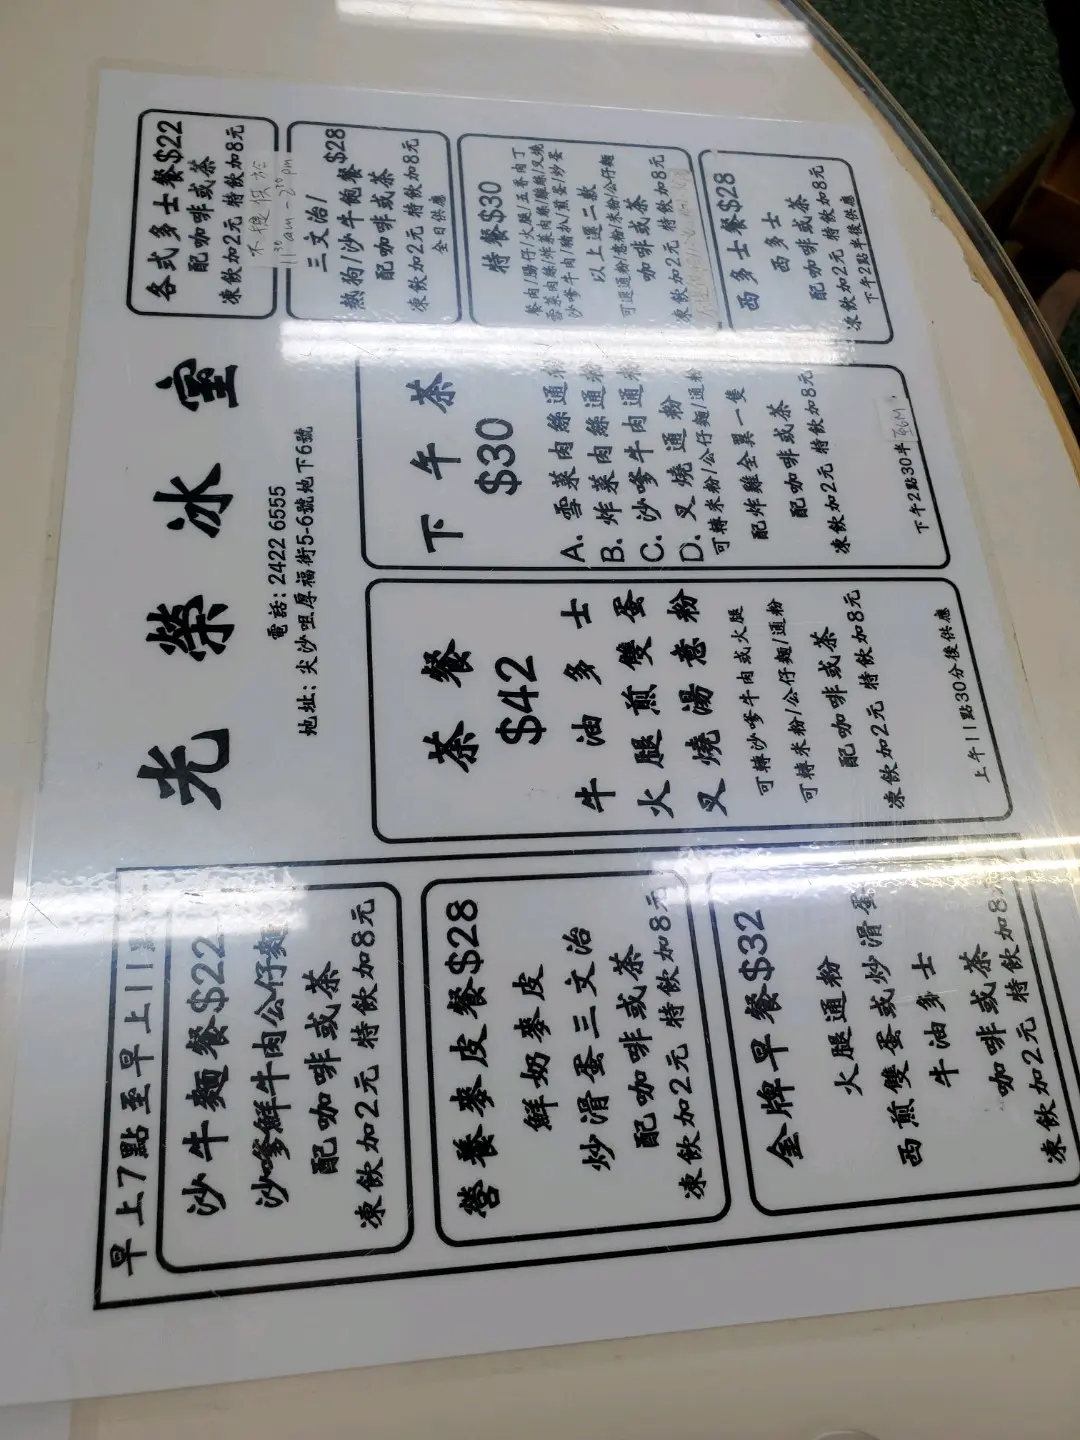 光榮冰室
電話: 2422 6555
地址: 尖沙咀厚福街5-6號地下6號
早上7點至早上11點
沙牛麵餐$22
沙嗲鮮牛肉公仔麵
配咖啡或茶
凍飲加2元 特飲加8元
營養麥皮餐$28
鮮奶麥皮
炒滑蛋三文治
配咖啡或茶
凍飲加2元 特飲加8元
金牌早餐$32
火腿通粉
西煎雙蛋或炒滑蛋
牛油多士
咖啡或茶
凍飲加2元 特飲加8
茶餐
$42
牛油多士
火腿煎雙蛋
叉燒湯意粉
可轉沙嗲牛肉或火腿
可轉米粉/公仔麵/通粉
配咖啡或茶
凍飲加2元 特飲加8元
上午11點30分後供應
下午茶
$30
A. 雪菜肉絲通粉
B. 炸菜肉絲通粉
C. 沙嗲牛肉通粉
D. 叉燒通粉
可轉米粉/公仔麵/通粉
配炸雞全翼一隻
配咖啡或茶
凍飲加2元 特飲加8元
下午2點30半
各式多士餐$22
配咖啡或茶
凍飲加2元 特飲加8元
不提供於
11:30am - 2:30pm
三文治/
熱狗/沙牛飽餐$28
配咖啡或茶
凍飲加2元 特飲加8元
全日供應
特餐$30
餐肉/腸仔/火腿/五香肉丁
雪菜肉絲/炸菜肉絲/雞絲/叉燒
沙嗲牛肉/豬扒/煎蛋/炒蛋
以上選二款
可選通粉/意粉/米粉/公仔麵
咖啡或茶
凍飲加2元 特飲加8元
西多士餐$28
西多士
配咖啡或茶
凍飲加2元 特飲加8元
下午2點半後供應